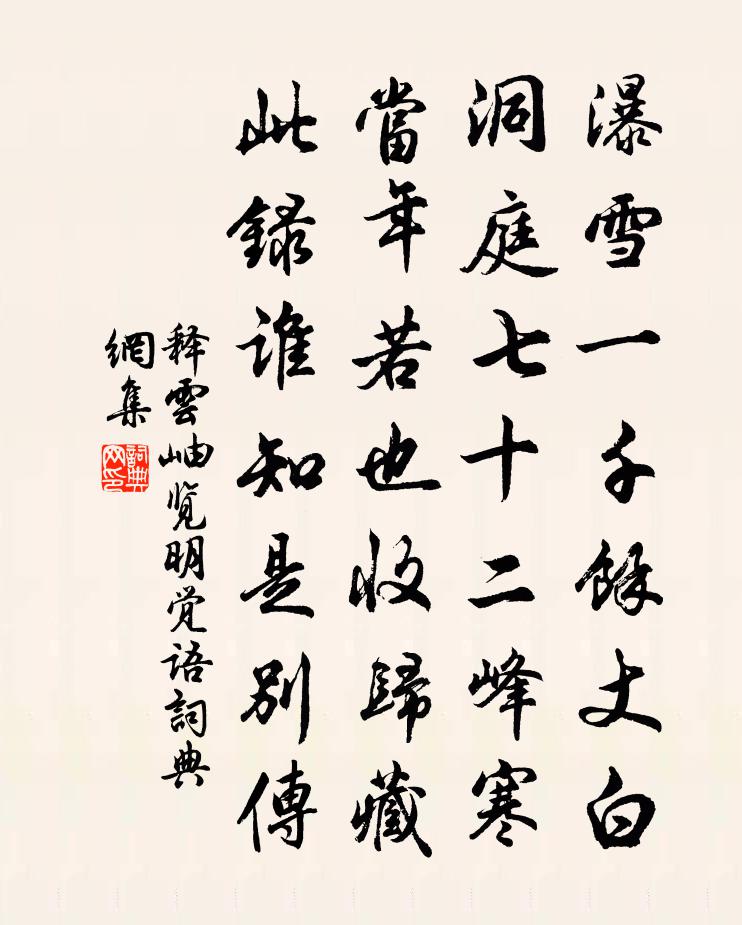 瀑雪一千餘丈白
洞庭七十二峰寒
當年若也收歸藏
此錄誰知是別傳
释雲岫览明觉语詞典
網集
詞典
网